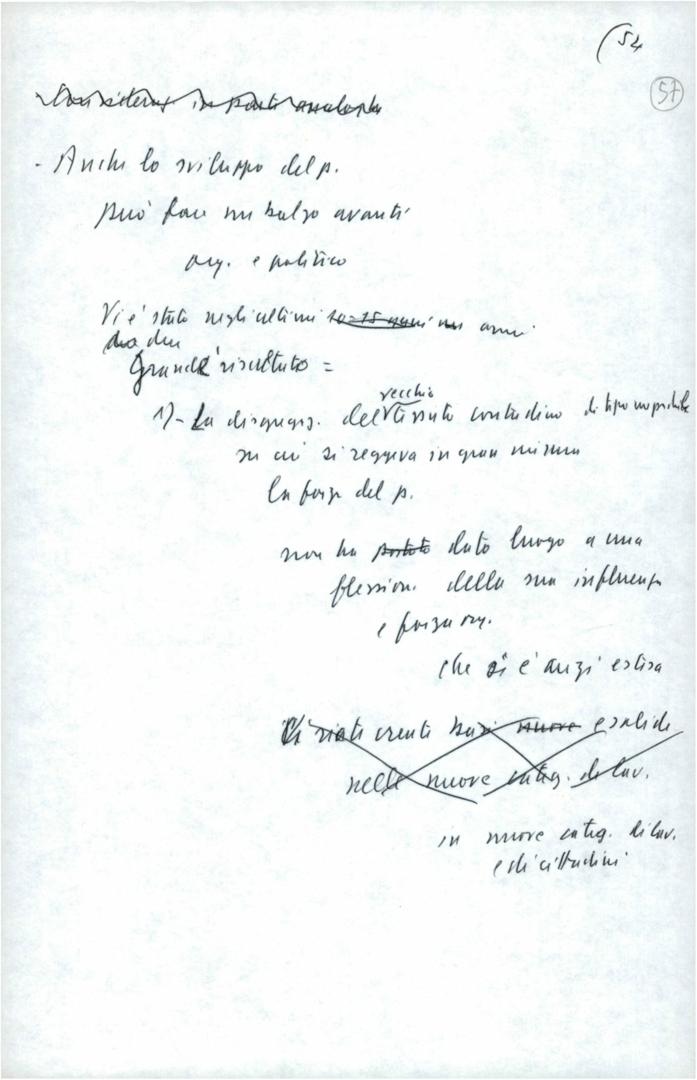 (54
57
- Anche lo sviluppo del p.
può fare un balzo avanti
org. e politico
Vi è stato negli ultimi 10-15 anni un anni
Grande risultato =
1) - La disgregaz. del vecchio tessuto contadino di tipo
su cui si reggeva in gran misura
la forza del p.
non ha portato dato luogo a una
flessione della sua influenza
e forza org.
che si è anzi estesa
Vi siati create basi nuove e solide
nelle nuove categ. di lav.
in nuove categ. di lav.
e di cittadini